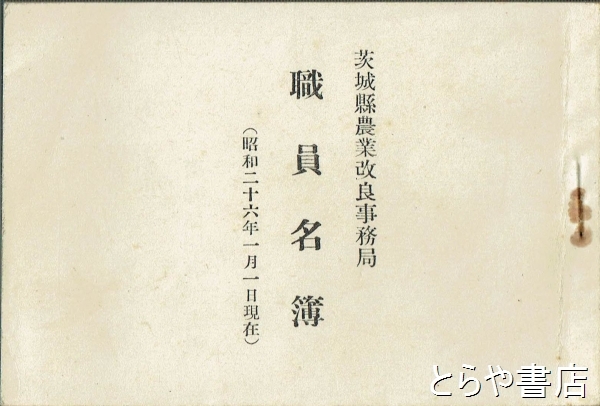 茨城縣農業改良事務局
職員名簿
（昭和二十六年一月一日現在）
とらや書店